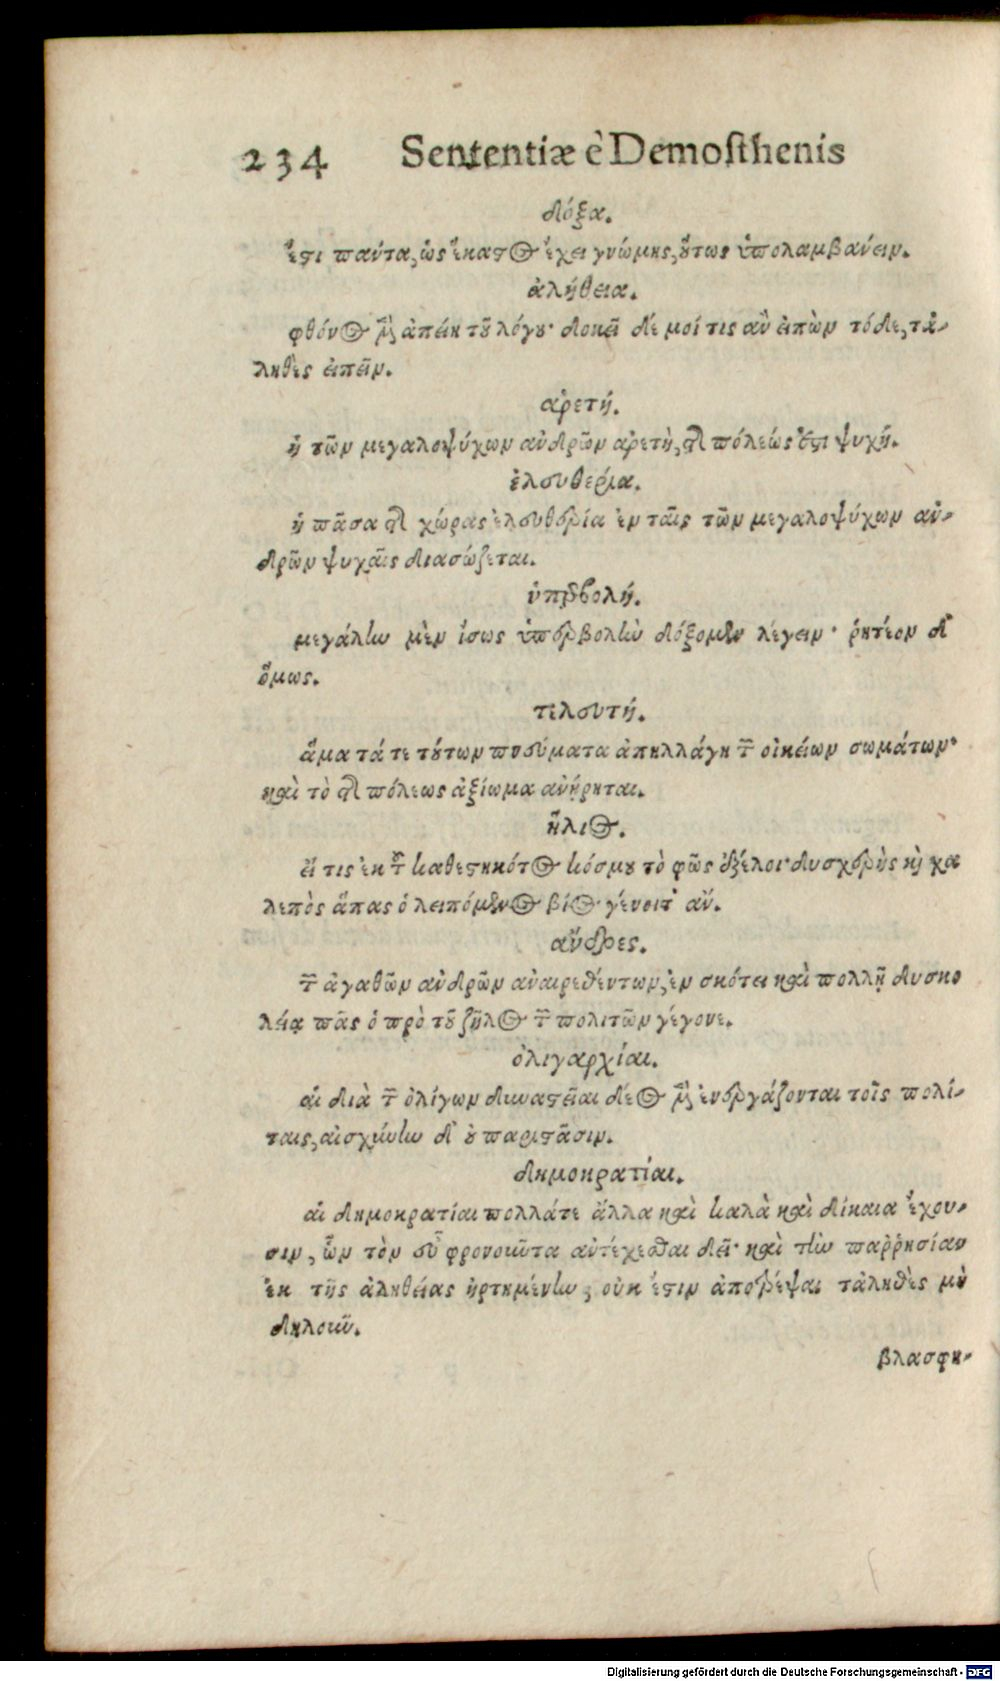 234 Sententiæ è Demosthenis
δόξα.
ἔστι πάντα, ὡς ἕκαστος ἔχει γνώμης, οὕτως ὑπολαμβάνειν.
ἀλήθεια.
φθόνος μὲν ἀπείη τοῦ λόγου· δοκεῖ δέ μοί τις ἂν εἰπὼν τόδε, τἀ-
ληθὲς εἰπεῖν.
ἀρετή.
ἡ τῶν μεγαλοψύχων ἀνδρῶν ἀρετὴ, τῆς πόλεώς ἐστι ψυχή.
ἐλευθερία.
ἡ πᾶσα τῆς χώρας ἐλευθερία ἐν ταῖς τῶν μεγαλοψύχων ἀν-
δρῶν ψυχαῖς διασώζεται.
ὑπερβολή.
μεγάλην μὲν ἴσως ὑπερβολὴν δόξομεν λέγειν· ῥητέον δ'
ὅμως.
τελευτή.
ἅμα τά τε τούτων πνεύματα ἀπηλλάγη τῶν οἰκείων σωμάτων·
καὶ τὸ τῆς πόλεως ἀξίωμα ἀνῄρηται.
ἥλιος.
εἴ τις ἐκ τοῦ καθεστηκότος κόσμου τὸ φῶς ἐξέλοι· δυσχερὴς καὶ χα
λεπὸς ἅπας ὁ λειπόμενος βίος γένοιτ' ἄν.
ἄνδρες.
τῶν ἀγαθῶν ἀνδρῶν ἀναιρεθέντων, ἐν σκότει καὶ πολλῇ δυσκο
λείᾳ πᾶς ὁ πρὸ τοῦ ζῆλος τῶν πολιτῶν γέγονε.
ὀλιγαρχίαι.
αἱ διὰ τῶν ὀλίγων δυναστεῖαι δέος μὲν ἐνεργάζονται τοῖς πολί-
ταις, αἰσχύνην δ' οὐ παριστᾶσιν.
δημοκρατίαι.
αἱ δημοκρατίαι πολλά τε ἄλλα καὶ καλὰ καὶ δίκαια ἔχου-
σιν, ὧν τὸν εὖ φρονοῦντα ἀντέχεσθαι δεῖ· καὶ τὴν παῤῥησίαν
ἐκ τῆς ἀληθείας ἠρτημένην, οὐκ ἔστιν ἀποτρέψαι τἀληθὲς μὴ
δηλοῦν.
βλασφη-
Digitalisierung gefördert durch die Deutsche Forschungsgemeinschaft - DFG